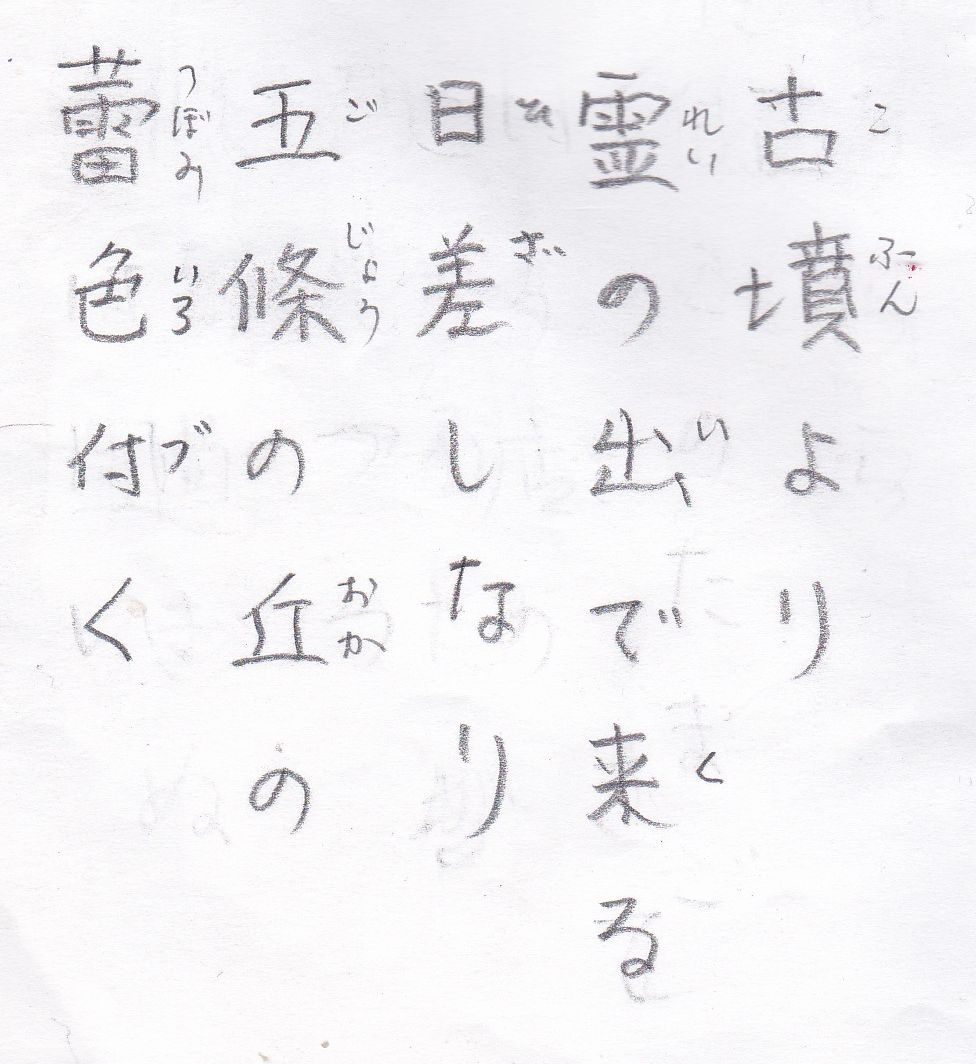 古墳より
こ ふん
霊の出で来る
れい い く
日差しなり
ひ ざ
五條の丘の
ご じょう おか
蕾色付く
つぼみ いろ づ